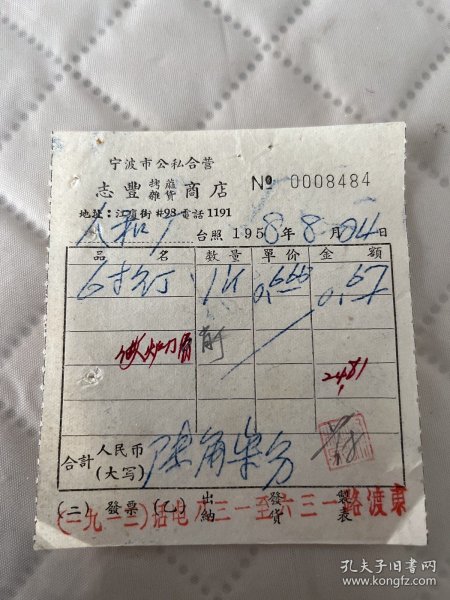 宁波市公私合营
志豐 拷蔴雜貨 商店 № 0008484
地址：江廈街 #98 電話 1191
人和 台照 1958年8月04日
品名 数量 單价 金額
6寸釘 1斤 0.666 0.67
2481
合計 人民币(大写) 陆角柒分
(二) 發票 (七) 出納 發貨 製表
東渡路一三六至一三八电話(二一九二)
孔夫子旧书网
www.kongfz.com